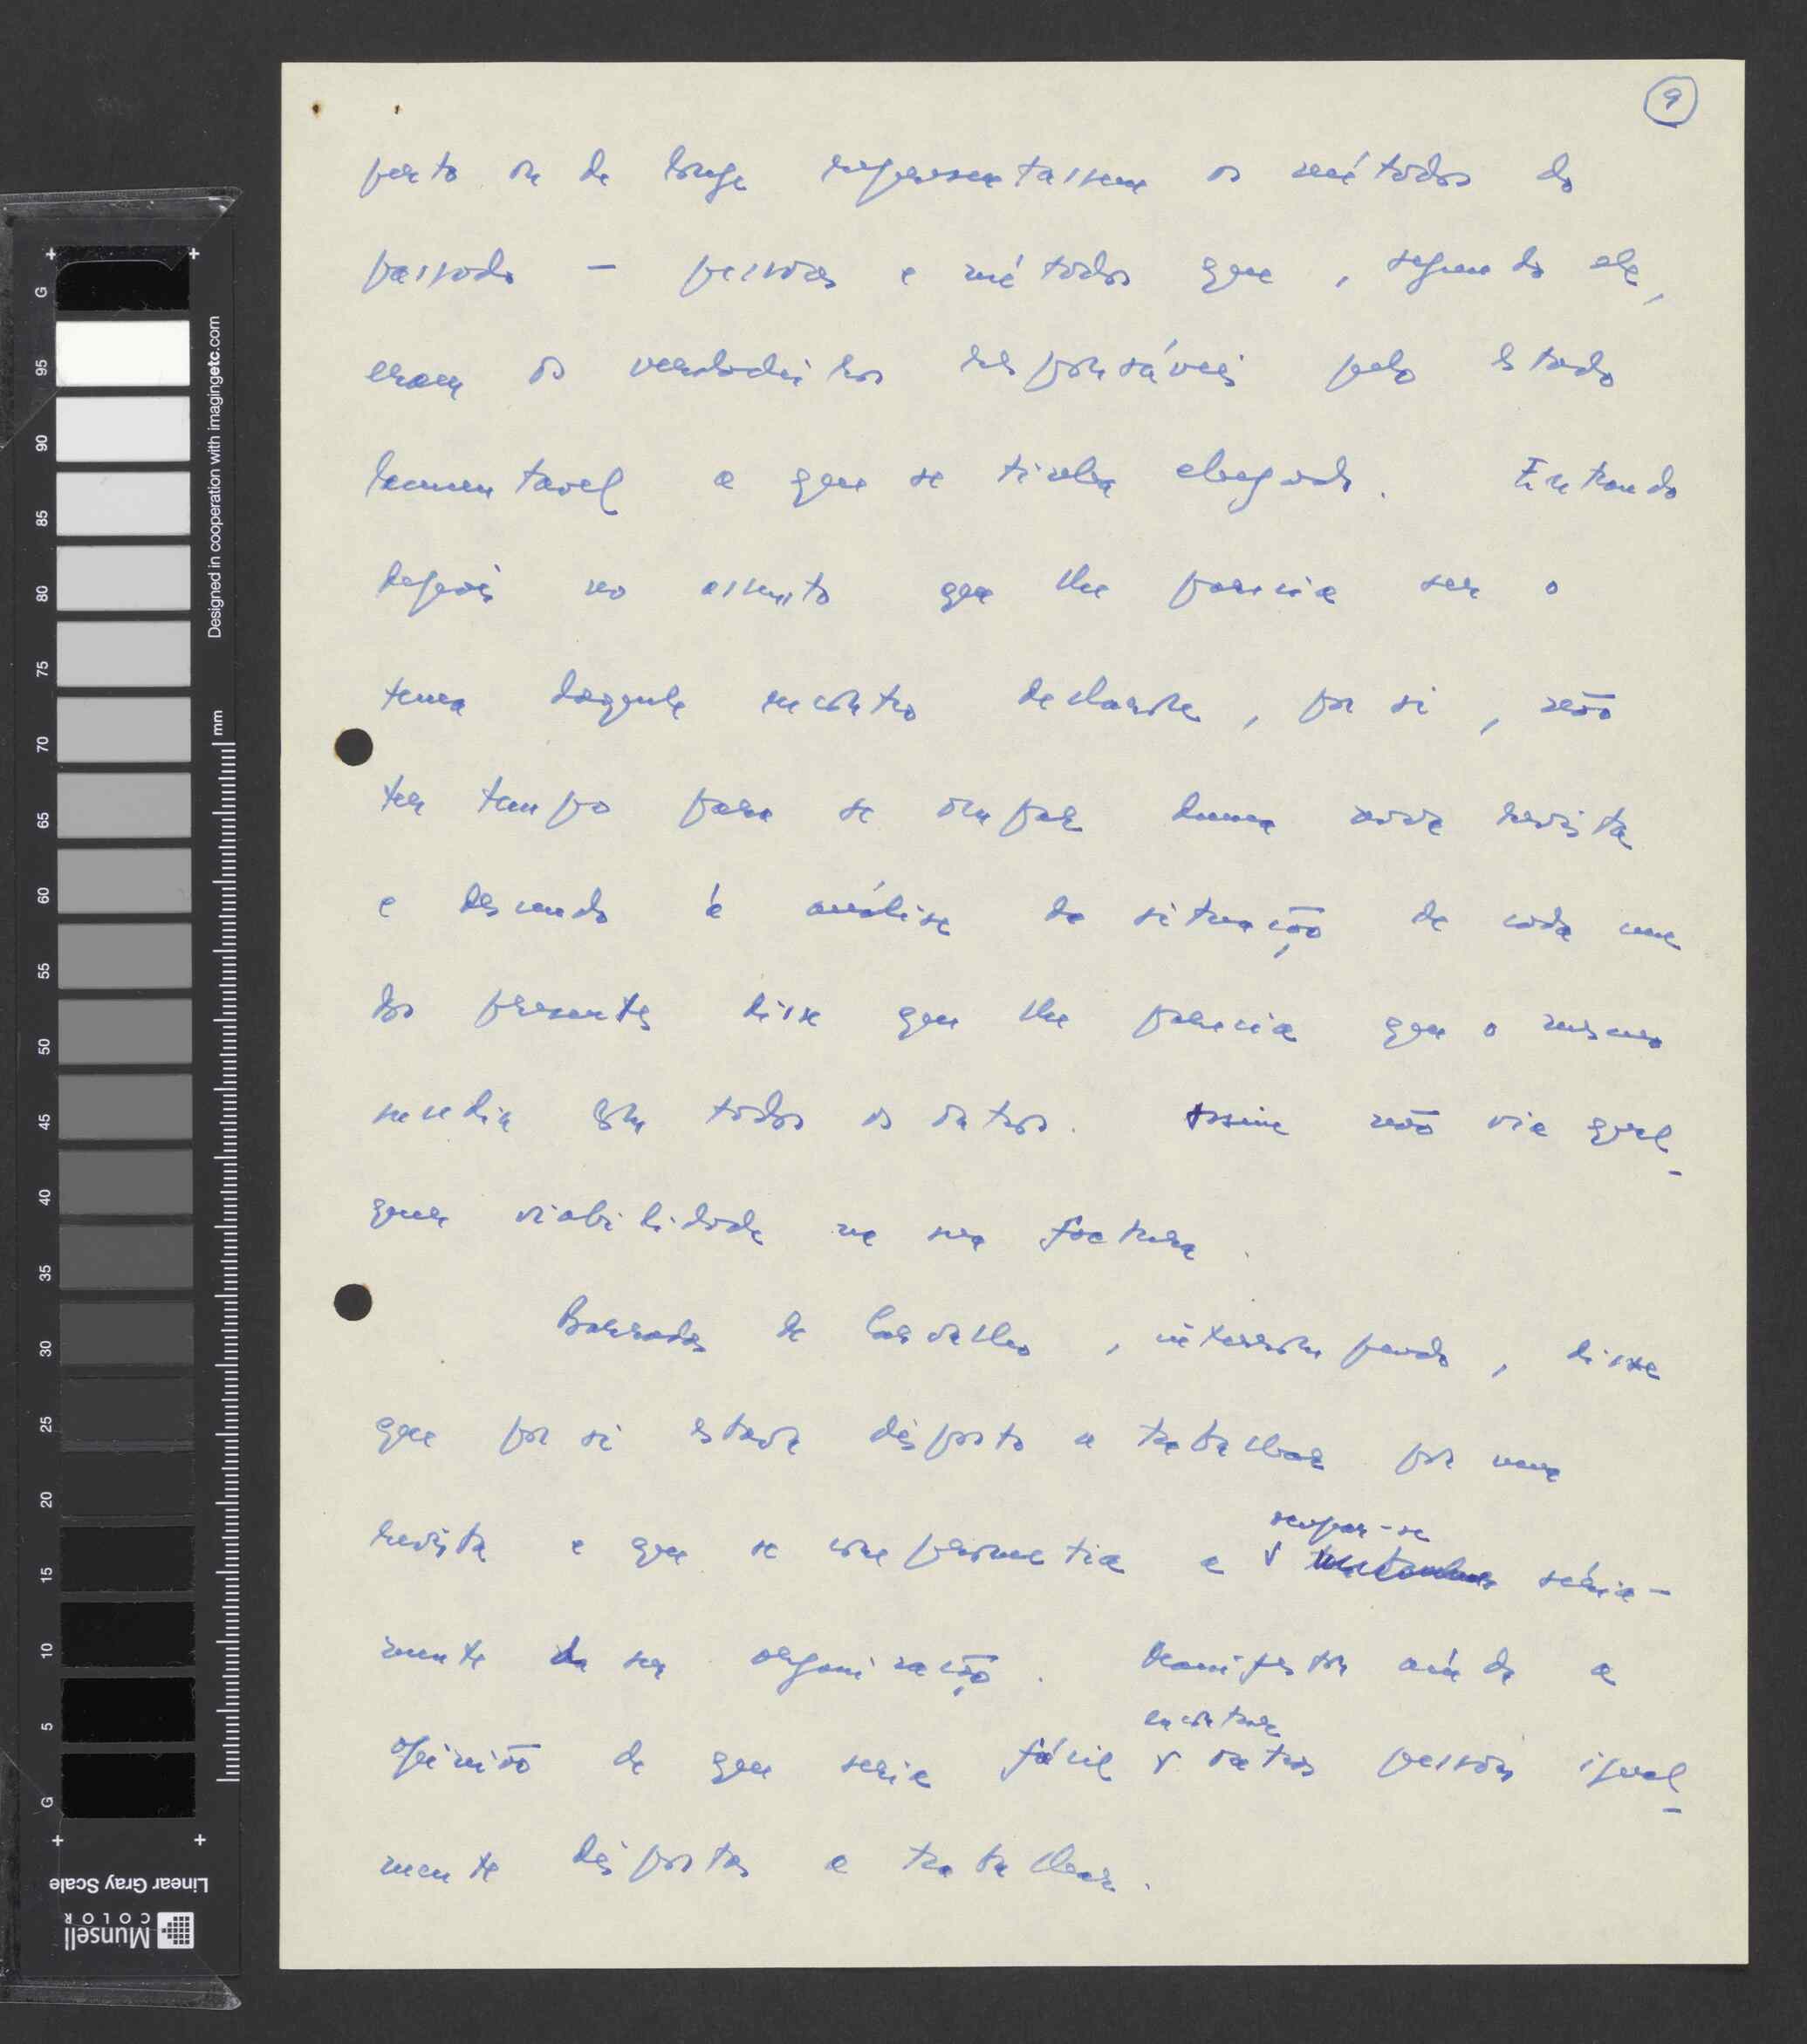 9
perto ou de longe representassem os métodos do
passado — pessoas e métodos que, segundo ele,
eram os verdadeiros responsáveis pelo estado
lamentavel a que se tinha chegado. Entrando
depois no assunto que lhe parecia ser o
tema daquele encontro declarou, por si, não
ter tempo para se ocupar duma nova revista
e descendo à análise da situação de cada um
dos presentes disse que lhe parecia que o mesmo
sucedia com todos os outros. Assim não via qual-
quer viabilidade na sua factura.
Barradas de Carvalho, interrompendo, disse
que por si estava disposto a trabalhar por uma
revista e que se comprometia a ocupar-se séria-
mente da sua organização. Manifestou ainda a
opinião de que seria fácil encontrar outras pessoas igual-
mente dispostas a trabalhar.
G
95
90
85
80
75
70
65
60
55
50
45
40
35
30
25
20
15
10
5
G
mm
Designed in cooperation with imagingetc.com
Linear Gray Scale
Munsell
COLOR